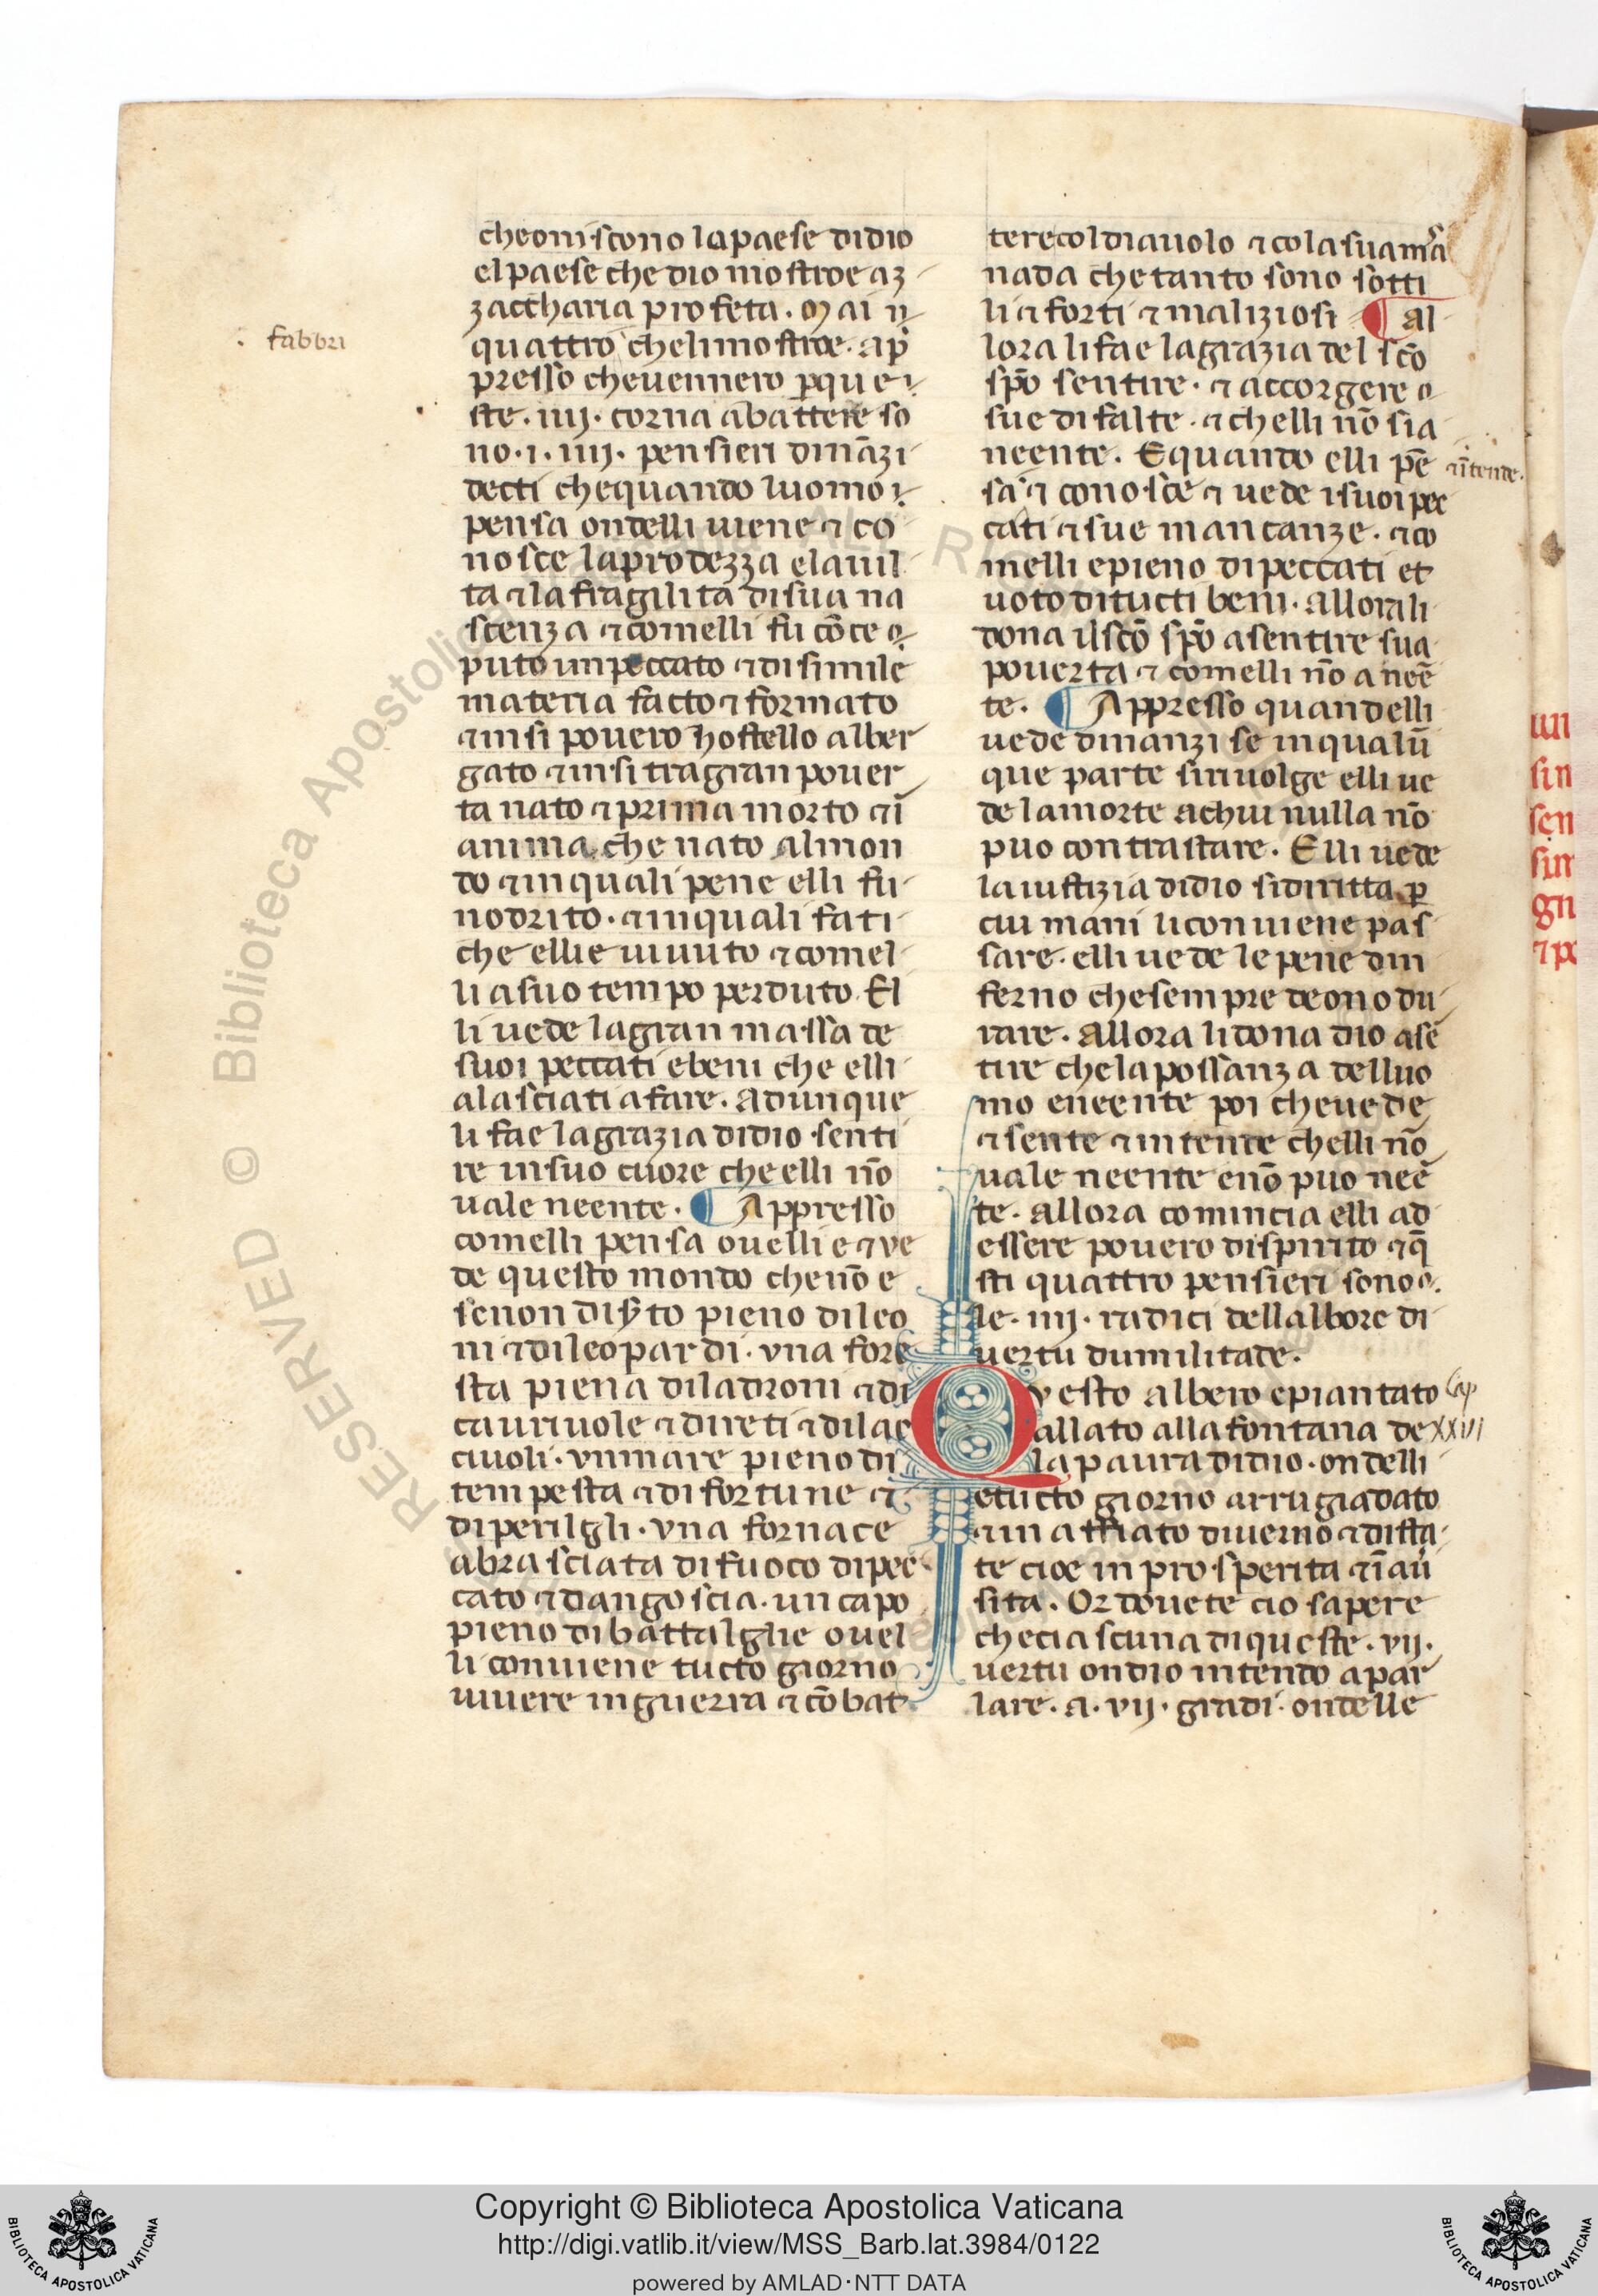 cheoniscono lapaese didio
el paese che dio mostroe az
zaccharia profeta. Mai ii
quattro chelimostroe. ap
presso cheuennero pque i
ste. iiij. corna abattere so
no. i. iiij. pensieri dināzi
decti chequando luomo i
pensa ondelli uiene ⁊ co
nosce laprodezza elauil
ta ⁊ lafragilita disua na
scenza ⁊ comelli fu cōce o
puto inpeccato ⁊ disimile
materia facto ⁊ formato
⁊ insi pouero hostello alber
gato ⁊ insi tragran pouer
ta nato ⁊ prima morto ⁊ ī
anima che nato almon
do ⁊ inquali pene elli fu
nodrito. ⁊ inquali fati
che ellie uiuuto ⁊ comel
li asuo tempo perduto. El
li uede lagran massa de
suoi peccati ebeni che elli
alasciati afare. Adunque
li fae lagrazia didio senti
re insuo cuore che elli nō
uale neente. ¶ Appresso
comelli pensa ouelli e ⁊ ve
de questo mondo chenō e
senon diṡto pieno dileo
ni ⁊ dileopardi. vna fore
sta piena diladroni ⁊ di
cauriuole ⁊ direti ⁊ dilac
ciuoli. vnmare pieno di
tempesta ⁊ difortune ⁊
diperilgli. vna fornace
abrasciata difuoco dipec
cato ⁊ dangoscia. un capo
pieno dibattalglie ouel
li conuiene tucto giorno
uiuere inguerra ⁊ cōbat
fabbri
terecoldiauolo ⁊ colasuamas
nada chetanto sono sotti
li ⁊ forti ⁊ maliziosi ¶ al
lora lifae lagrazia del sc̄o
sp̄o sentire. ⁊ accorgere o
sue difalte. ⁊ chelli nō sia
neente. Equando elli pē
sa ⁊ conosce ⁊ uede isuoi pec
cati ⁊ sue mancanze. ⁊ co
melli epieno dipeccati et
uoto ditucti beni. allorali
dona ilsc̄o sp̄o asentire sua
pouerta ⁊ comelli nō a neē
te. ¶ Appresso quandelli
uede dinanzi se inqualū
que parte siriuolge elli ue
de lamorte achui nulla nō
puo contrastare. Elli uede
laiustizia didio sidiritta p
cui mani liconuiene pas
sare. elli uede le pene din
ferno chesempre deono du
rare. Allora lidona dio asē
tire chelapossanza delluo
mo eneente poi cheuede
⁊ sente ⁊ intende chelli nō
uale neente enō puo neē
te. allora comincia elli ad
essere pouero dispirito ⁊ q̄
sti quattro pensieri sono o
le. iiij. radici dellalbore di
uertu dumilitade.
⁊ītende.
Qvesto albero epiantato
allato allafontana de
la paura didio. ondelli
etucto giorno arrugiadato
⁊ inaffiato diuerno ⁊ dista
te cioe in prosperita ⁊ ī auu̇
sita. Or douete cio sapere
checiascuna diqueste. vij.
uertu ondio intendo apar
lare. a. vij. gradi. ondelle
Cap
XXIII
un
sin
sen
sin
gn
⁊ pe
© Biblioteca Apostolica
RESERVED
Copyright © Biblioteca Apostolica Vaticana
http://digi.vatlib.it/view/MSS_Barb.lat.3984/0122
powered by AMLAD·NTT DATA
BIBLIOTECA APOSTOLICA VATICANA
BIBLIOTECA APOSTOLICA VATICANA